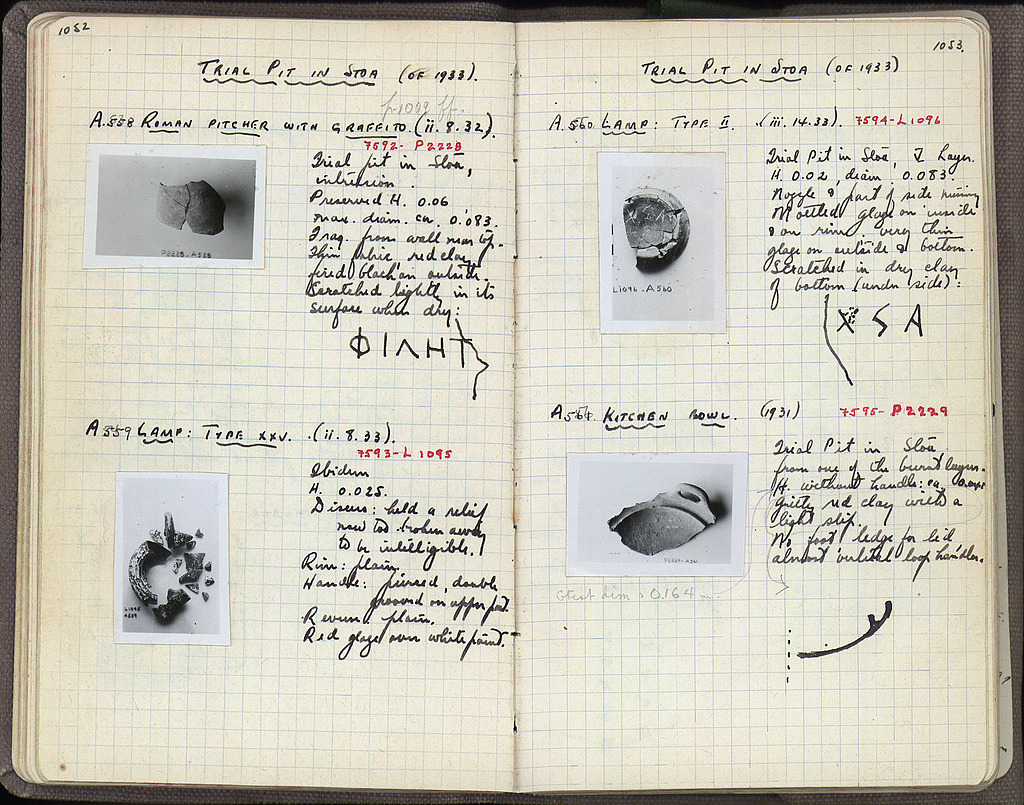 1052
TRIAL PIT IN STOA (OF 1933).
p. 1009 ff.
A.558 ROMAN PITCHER WITH GRAFFITO. (ii.8.32).
7592- P2228
Trial pit in Stoa,
intrusion.
Preserved H. 0.06
max. diam. ca. 0.083.
Frag. from wall near top.
Thin fabric red clay
fired black on outside.
Scratched lightly in its
surface when dry:
ΦΙΛΗΤ
P2228-A558
A559 LAMP: TYPE XXV. (ii.8.33).
7593-L1095
Ibidem
H. 0.025.
Discus: held a relief
now too broken away
to be intelligible.
Rim: plain.
Handle: pierced, double
grooved on upper part.
Reverse plain.
Red glaze over white paint.
L1095
A559
1053.
TRIAL PIT IN STOA (OF 1933)
A.560. LAMP: TYPE II. (iii.14.33). 7594-L1096
Trial Pit in Stoa, V Layer.
H. 0.02, diam. 0.083.
Nozzle & part of side missing
Mottled glaze on inside
& on rim very thin
glaze on outside & bottom.
Scratched in dry clay
of bottom (under side):
X S A
L1096-A560
A561. KITCHEN BOWL. (1931) 7595-P2229
Trial Pit in Stoa,
from one of the burnt layers.
H. without handle: ca.
Gritty red clay with a
light slip.
No foot, ledge for lid
almost vertical loop handles.
P2229-A561
Gtest dim: 0.164 m.